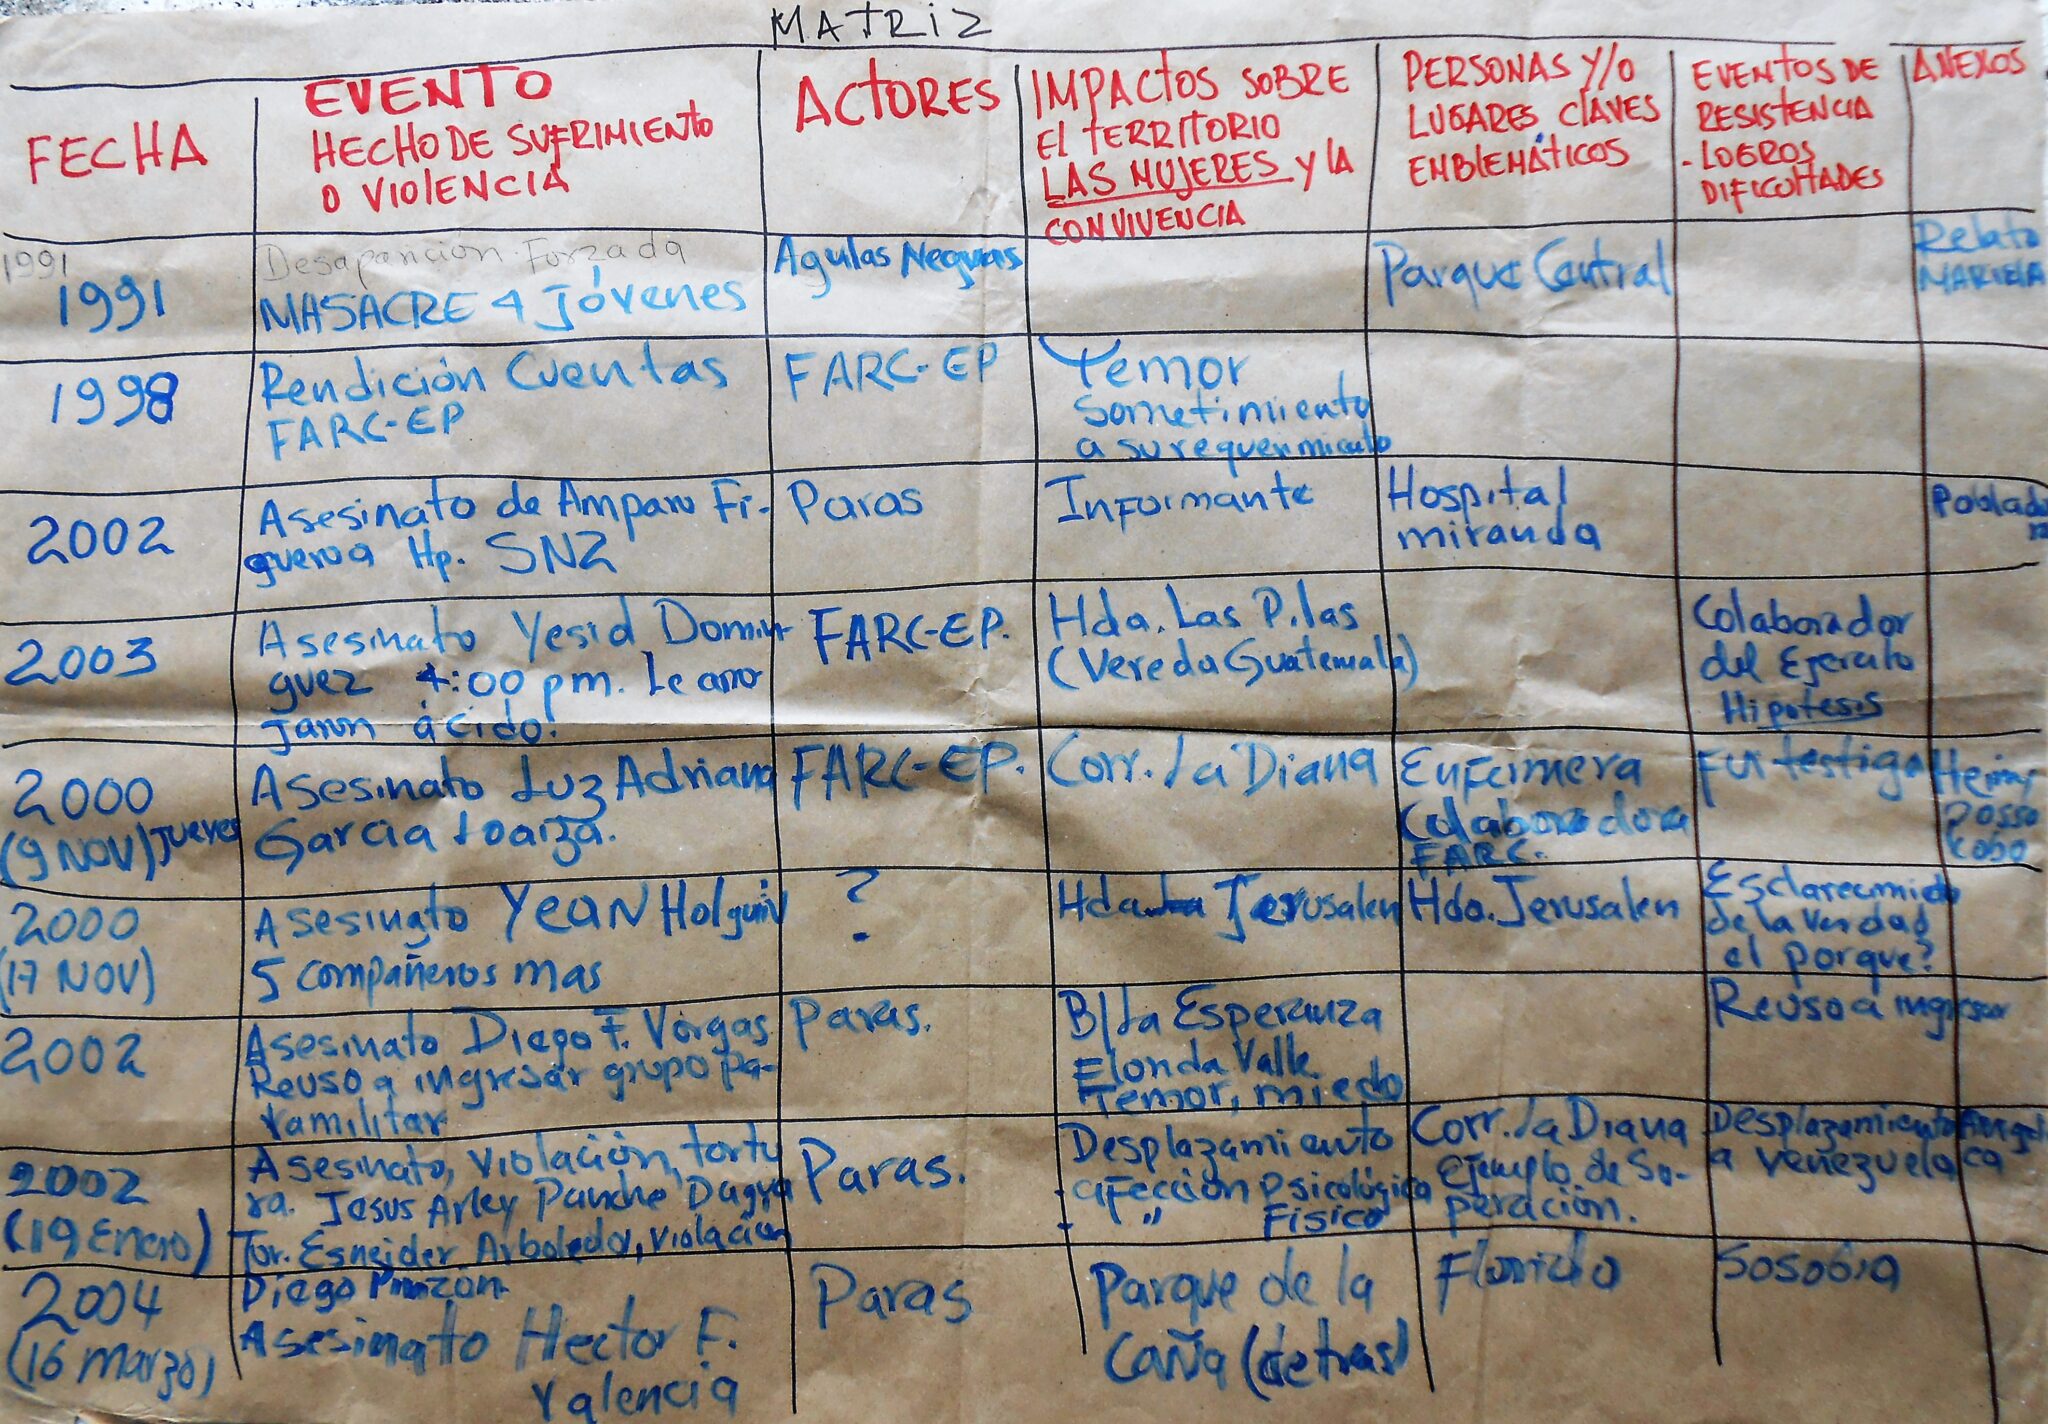 MATRIZ
FECHA
EVENTO
HECHO DE SUFRIMIENTO
O VIOLENCIA
ACTORES
IMPACTOS SOBRE
El TERRITORIO
LAS MUJERES y la
CONVIVENCIA
PERSONAS Y/O
LUGARES CLAVES
EMBLEMÁTICOS
EVENTOS DE
RESISTENCIA
- LOGROS
DIFICULTADES
ANEXOS
1991
1991
Desaparición Forzada
MASACRE 4 Jóvenes
Agulas Negras
Parque Central
Relato
MARIELA
1998
Rendición Cuentas
FARC-EP
FARC-EP
Temor
Sometimiento
a su requerimiento
2002
Asesinato de Amparo Fi-
gueroa Hp. SNZ
Paras
Informante
Hospital
miranda
2003
Asesinato Yesid Domin
guez 4:00 pm. Le arro
jaron ácido.
FARC-EP.
Hda. Las Pilas
(Vereda Guatemala)
Colaborador
del Ejercito
Hipotesis
2000
(9 NOV) Jueves
Asesinato Luz Adriana
Garcia Loaiza.
FARC-EP.
Corr. La Diana
Enfermera
Colaboradora
FARC.
Fui testigo
2000
(17 NOV)
Asesinato Yean Holguin
5 compañeros mas
?
Hda. Jerusalen
Hda. Jerusalen
Esclarecimido
de la Verdad
el porque?
2002
Asesinato Diego F. Vargas
Reuso a ingresar grupo pa-
ramilitar
Paras.
B/ La Esperanza
Flonda Valle.
Temor, miedo
Reuso a ingresar
2002
(19 Enero)
Asesinato, violación, tortu
ra. Jesus Arley Pancho Dagua
Tor. Esneider Arboleda, violación
Paras.
Desplazamiento
- afección psicológica
- " Fisico
Corr. La Diana
ejemplo de so-
peración.
Desplazamiento
a venezuela
Angeli
ca
2004
(16 marzo)
Diego Pinzón
Asesinato Hector F.
Valencia
Paras
Parque de la
Caña (detras)
Florida
Sosobra